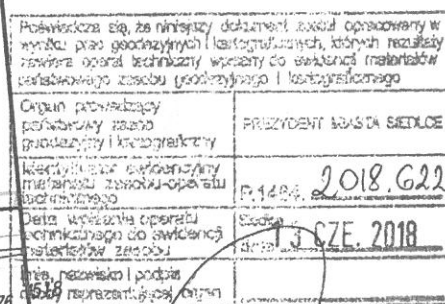 Poświadcza się, że niniejszy dokument został opracowany w
wyniku prac geodezyjnych i kartograficznych, których rezultaty
zawiera operat techniczny wpisany do ewidencji materiałów
państwowego zasobu geodezyjnego i kartograficznego
Organ prowadzący
państwowy zasób
geodezyjny i kartograficzny
PREZYDENT MIASTA SIEDLCE
Identyfikator ewidencyjny
materiału zasobu-operatu
technicznego
P.1464. 2018.622
Data wpisania operatu
technicznego do ewidencji
materiałów zasobu
Siedlce
dnia 13 CZE. 2018
Imię, nazwisko i podpis
osoby reprezentującej organ